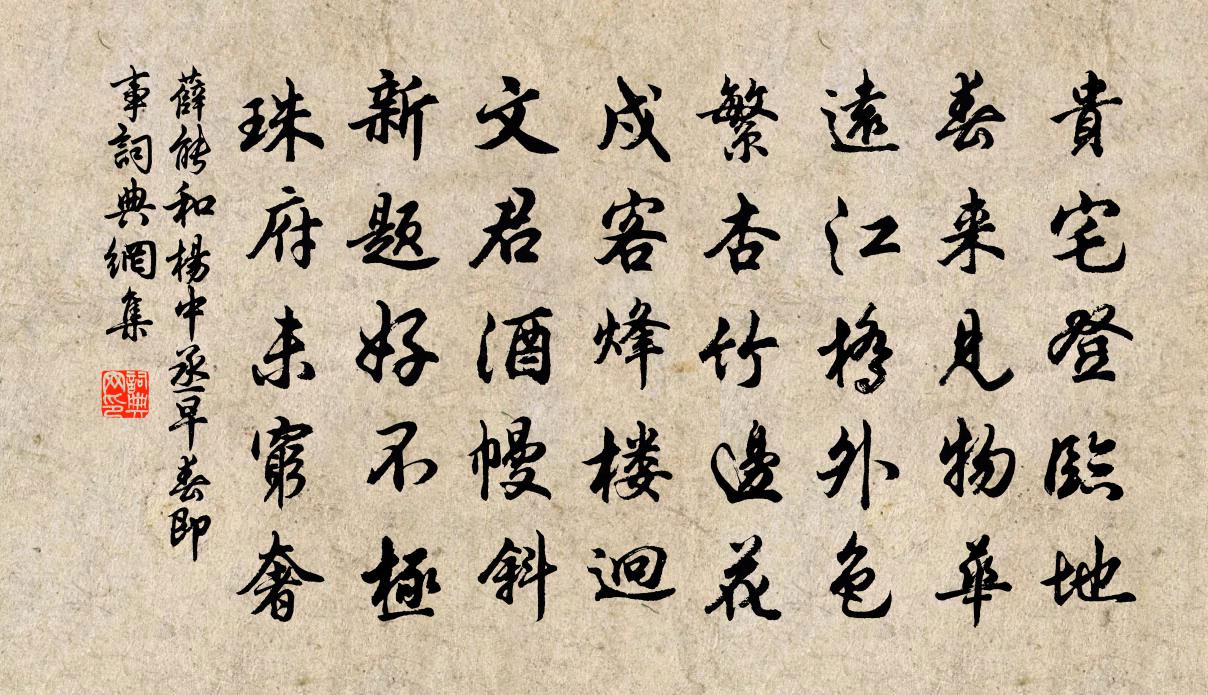 貴宅登臨地
春来見物華
遠江橋外色
繁杏竹邊花
戍客烽楼迥
文君酒幔斜
新题好不極
珠府未窮奢
薛能和楊中丞早春即
事詞典網集
詞典
网印